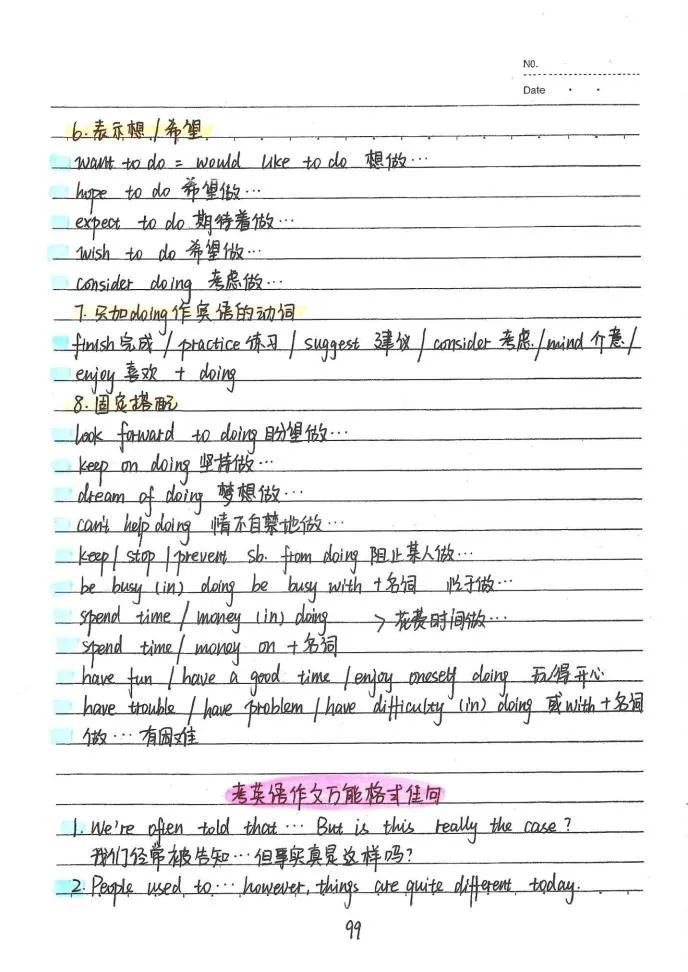 NO.
Date
6. 表示想/希望
want to do = would like to do 想做…
hope to do 希望做…
expect to do 期待着做…
wish to do 希望做…
consider doing 考虑做…
7. 只加doing作宾语的动词
finish完成 / practice 练习 / suggest 建议 / consider 考虑/mind 介意/
enjoy 喜欢 + doing
8. 固定搭配
look forward to doing 盼望做…
keep on doing 坚持做…
dream of doing 梦想做…
can't help doing 情不自禁地做…
keep/ stop / prevent sb. from doing 阻止某人做…
be busy (in) doing be busy with +名词 忙于做…
spend time / money (in) doing > 花费时间做…
spend time/ money on +名词
have fun / have a good time /enjoy oneself doing 玩得开心
have trouble / have problem / have difficulty (in) doing 或with +名词
做… 有困难
考英语作文万能格式佳句
1. We're often told that… But is this really the case?
我们经常被告知…但事实真是这样吗?
2. People used to… however, things are quite different today.
99